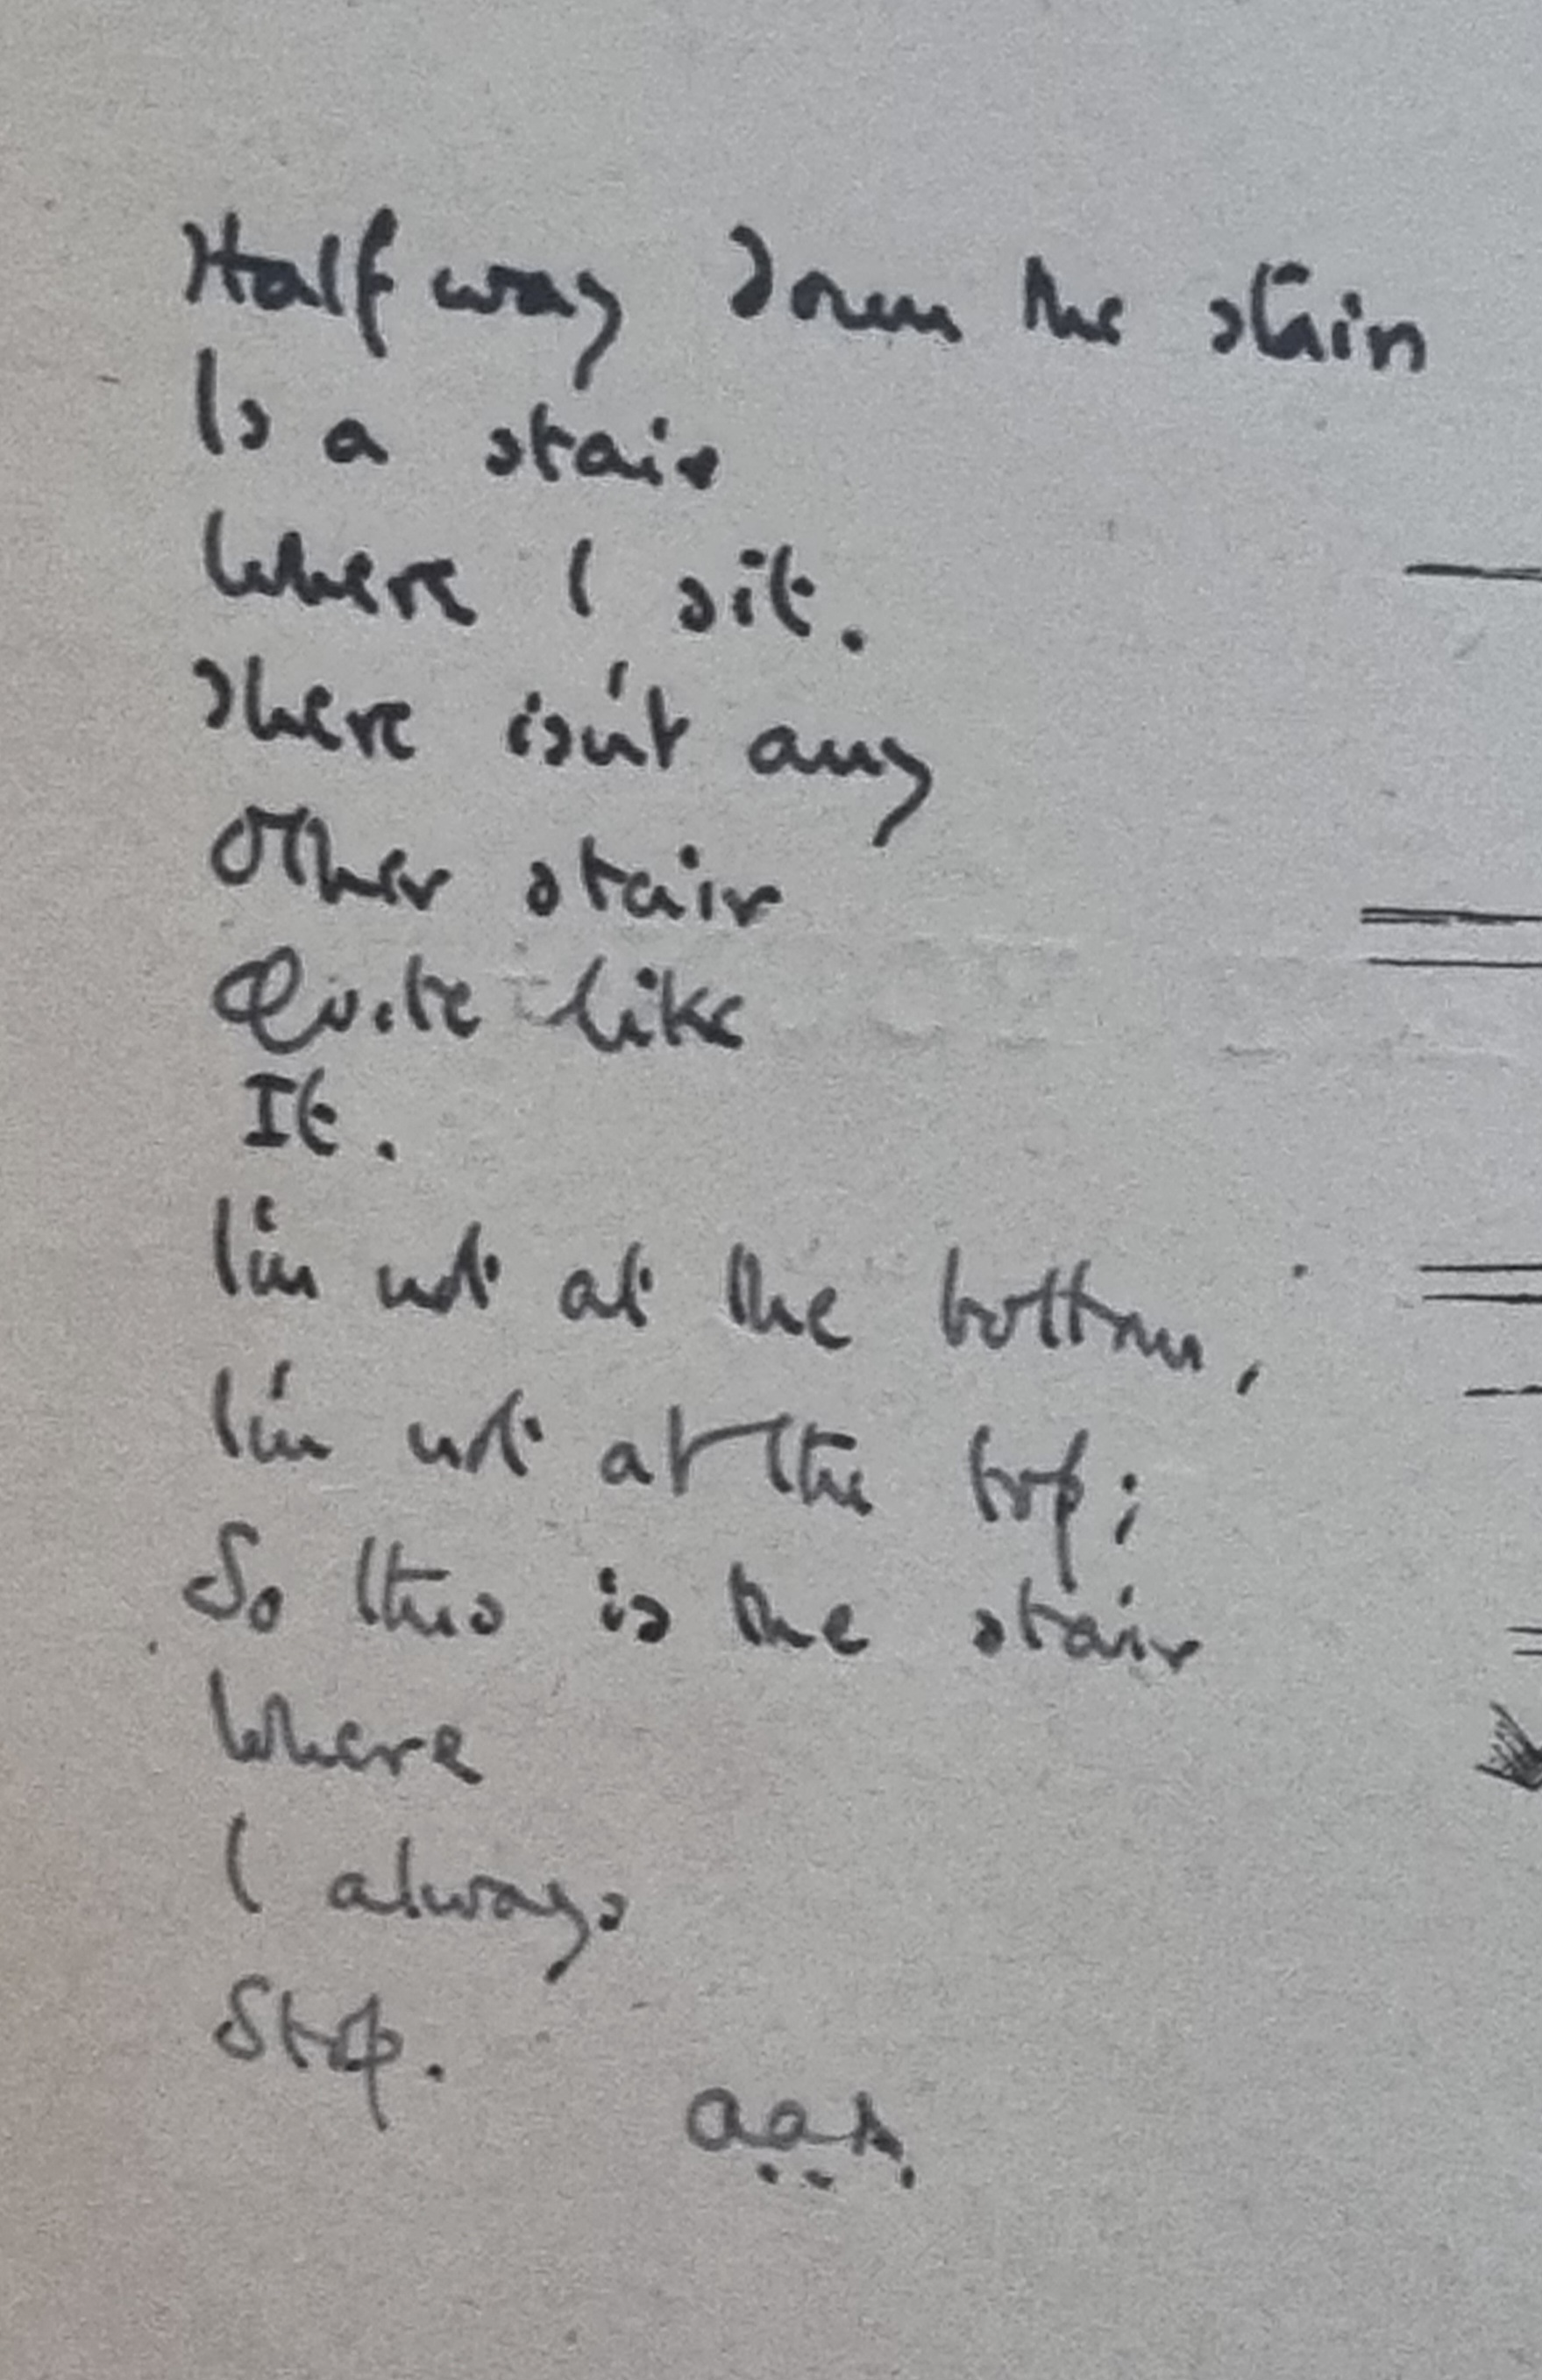 Halfway down the stairs
Is a stair
Where I sit.
There isn't any
Other stair
Quite like
It.
I'm not at the bottom,
I'm not at the top;
So this is the stair
Where
I always
Stop.